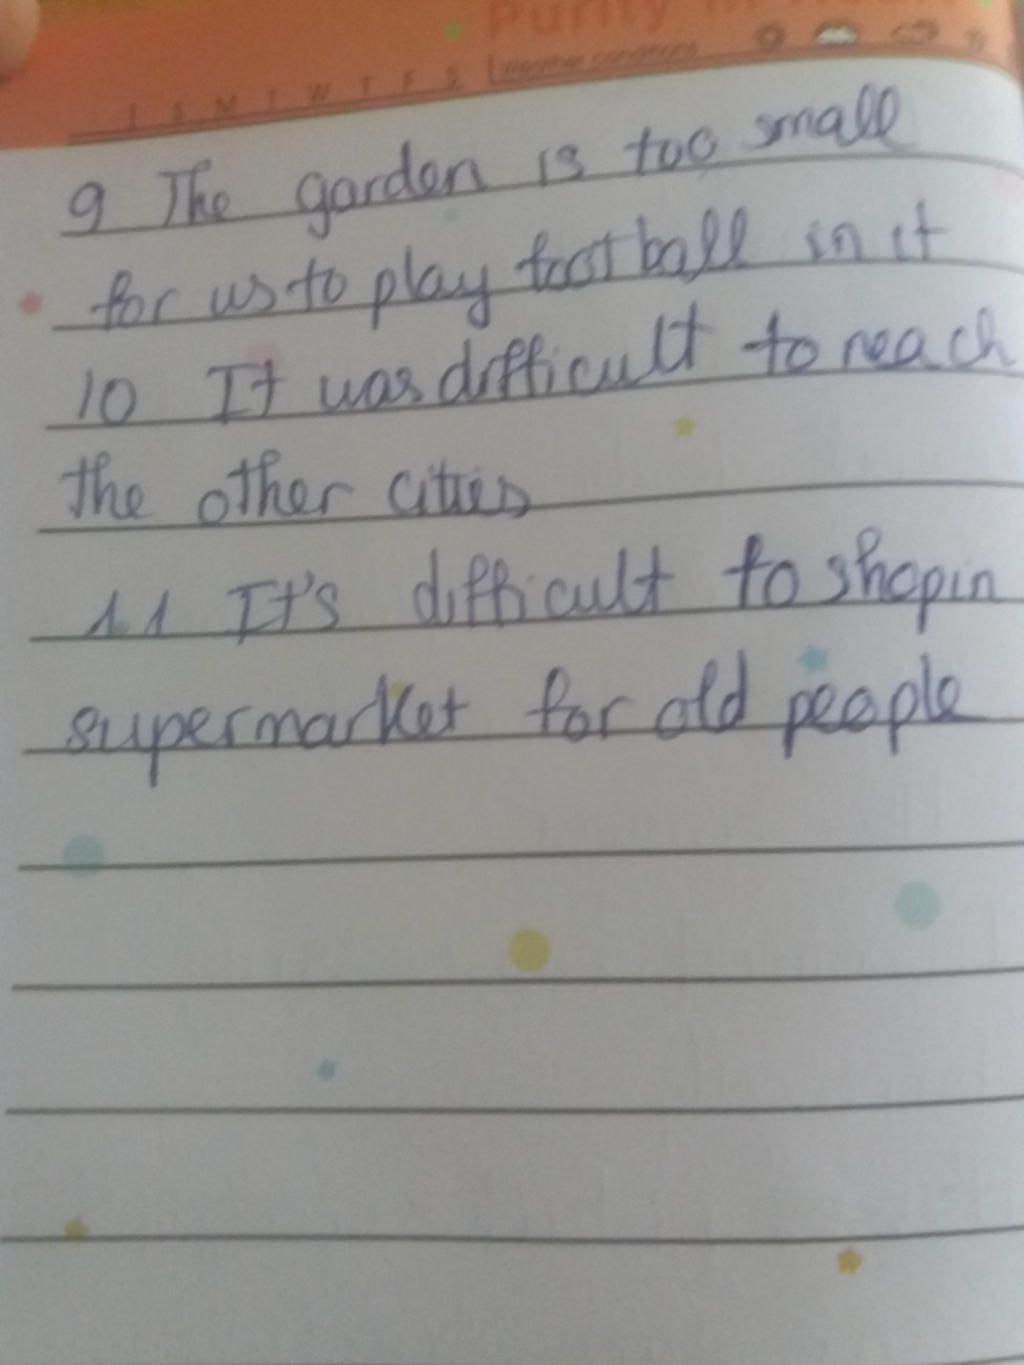 Purity
I S M T W T F S
9 The garden is too small
for us to play football in it
10 It was difficult to reach
the other cities
11 It's difficult to shop in
supermarket for old people